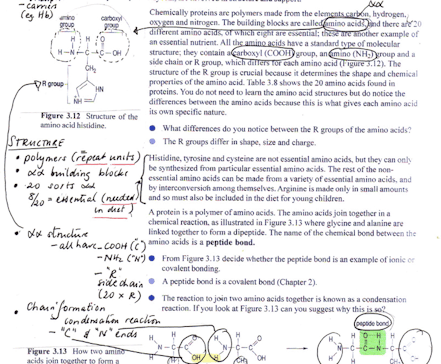 - carrier
(eg Hb)
amino group
carboxyl group
H O
H—N—C—C—OH
H
CH₂
R group
NH
HN
Figure 3.12 Structure of the
amino acid histidine.
STRUCTURE
• polymers (repeat units)
• αα building blocks
• 20 sorts αα
8/20 = essential (needed
in diet)
• αα structure
- all have -COOH ("C")
- NH₂ ("N")
- "R"
side chain
(20 x R)
• Chain formation
- condensation reaction
- "C" & "N" Ends
Figure 3.13 How two amino
acids join together to form a
αα
Chemically proteins are polymers made from the elements carbon, hydrogen,
oxygen and nitrogen. The building blocks are called amino acids and there are 20
different amino acids, of which eight are essential; these are another example of
an essential nutrient. All the amino acids have a standard type of molecular
structure; they contain a carboxyl (COOH) group, an amino (NH₂) group and a
side chain or R group, which differs for each amino acid (Figure 3.12). The
structure of the R group is crucial because it determines the shape and chemical
properties of the amino acid. Table 3.8 shows the 20 amino acids found in
proteins. You do not need to learn the amino acid structures but do notice the
differences between the amino acids because this is what gives each amino acid
its own specific nature.
What differences do you notice between the R groups of the amino acids?
The R groups differ in shape, size and charge.
Histidine, tyrosine and cysteine are not essential amino acids, but they can only
be synthesized from particular essential amino acids. The rest of the non-
essential amino acids can be made from a variety of essential amino acids, and
by interconversion among themselves. Arginine is made only in small amounts
and so must also be included in the diet for young children.
A protein is a polymer of amino acids. The amino acids join together in a
chemical reaction, as illustrated in Figure 3.13 where glycine and alanine are
linked together to form a dipeptide. The name of the chemical bond between the
amino acids is a peptide bond.
From Figure 3.13 decide whether the peptide bond is an example of ionic or
covalent bonding.
A peptide bond is a covalent bond (Chapter 2).
The reaction to join two amino acids together is known as a condensation
reaction. If you look at Figure 3.13 can you suggest why this is so?
peptide bond